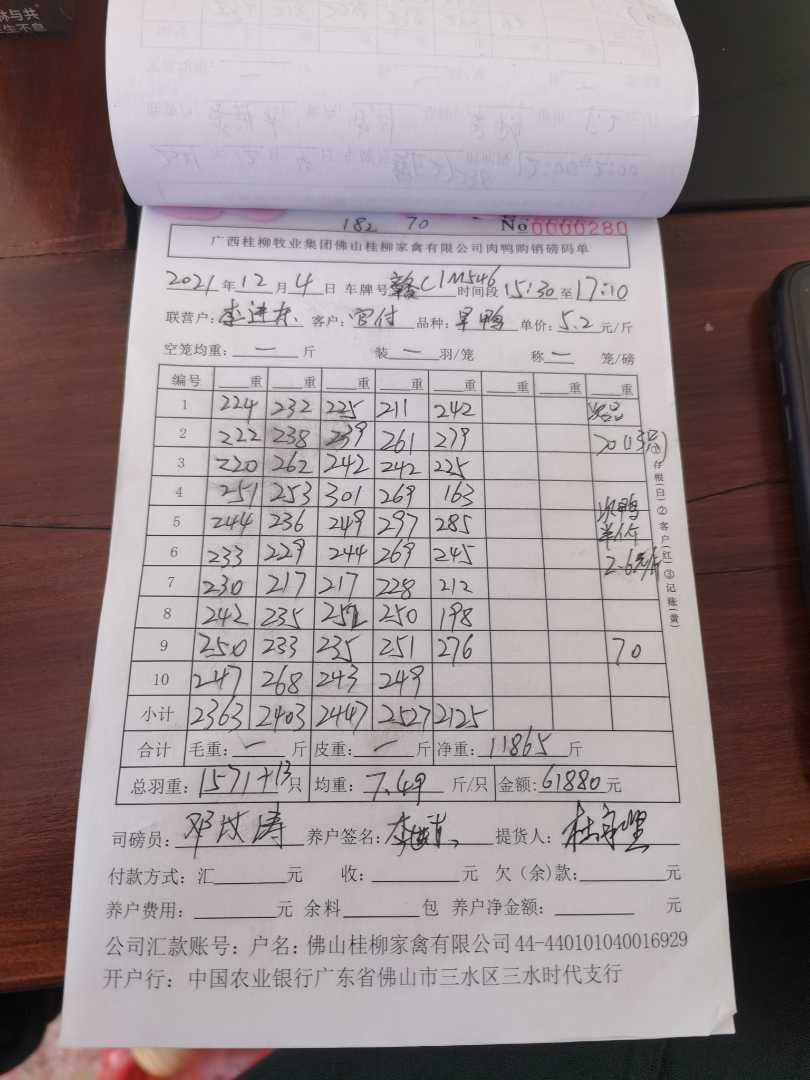 182 70
No 0000280
广西桂柳牧业集团佛山桂柳家禽有限公司肉鸭购销磅码单
2021年12月4日 车牌号 赣C1M546 时间段 15:30至17:10
联营户: 客户: 官付 品种: 旱鸭 单价: 5.2元/斤
空笼均重: 一 斤 装 一 羽/笼 称 一 笼/磅
编号 重 重 重 重 重 重 重 重
1 224 232 225 211 242 次品
2 222 238 239 261 279 70 (13只)
3 220 262 242 242 225
4 251 253 301 269 163
5 244 236 249 297 285 次鸭 半价
6 233 229 244 269 245 2.6元/斤
7 230 217 217 228 212
8 242 235 252 250 198
9 250 233 235 251 276 70
10 247 268 243 249
小计 2363 2403 2447 2527 2125
合计 毛重: 一 斤 皮重: 一 斤 净重: 11865 斤
总羽重: 1571+13 只 均重: 7.49 斤/只 金额: 61880 元
司磅员: 养户签名: 提货人:
付款方式: 汇 元 收: 元 欠(余)款: 元
养户费用: 元 余料 包 养户净金额: 元
公司汇款账号: 户名: 佛山桂柳家禽有限公司 44-440101040016929
开户行: 中国农业银行广东省佛山市三水区三水时代支行
①存根(白)②客户(红)③记账(黄)